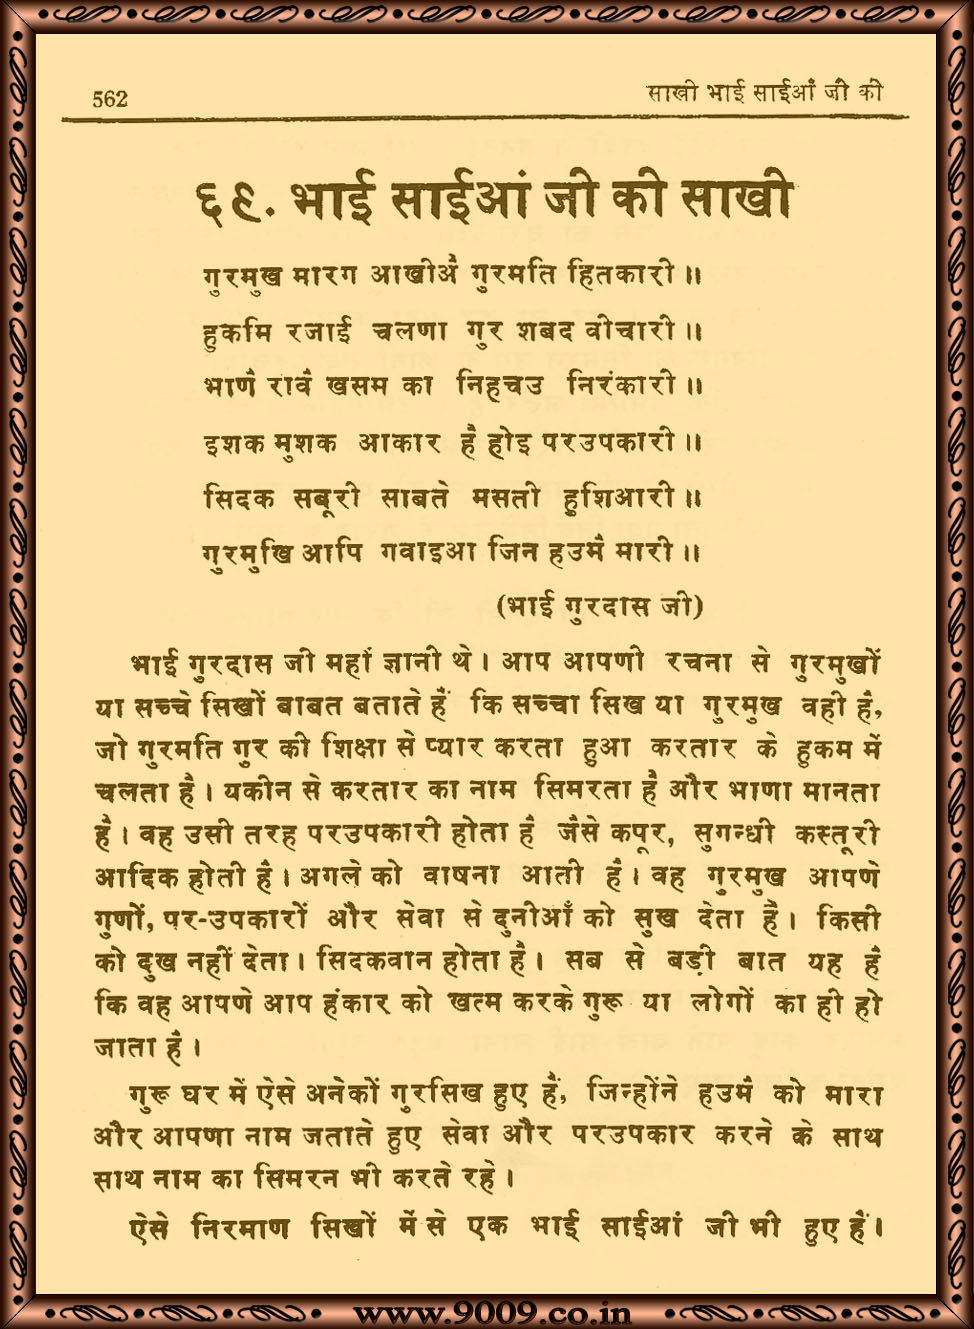 562 साखी भाई साईआँ जी की
६९. भाई साईआं जी की साखी
गुरमुख मारग आखीअै गुरमति हितकारी॥
हुकमि रजाई चलणा गुर शबद वीचारी॥
भाणै रावै खसम का निहचउ निरंकारी॥
इशक मुशक आकार है होइ परउपकारी॥
सिदक सबूरी साबते मसती हुशिआरी॥
गुरमुखि आपि गवाइआ जिन हउमै मारी॥
(भाई गुरदास जी)
भाई गुरदास जी महाँ ज्ञानी थे। आप आपणी रचना से गुरमुखों
या सच्चे सिखों बाबत बताते हैं कि सच्चा सिख या गुरमुख वही है,
जो गुरमति गुर की शिक्षा से प्यार करता हुआ करतार के हुकम में
चलता है। यकीन से करतार का नाम सिमरता है और भाणा मानता
है। वह उसी तरह परउपकारी होता है जैसे कपूर, सुगन्धी कस्तूरी
आदिक होती है। अगले को वाषना आती है। वह गुरमुख आपणे
गुणों, पर-उपकारों और सेवा से दुनीआँ को सुख देता है। किसी
को दुख नहीं देता। सिदकवान होता है। सब से बड़ी बात यह है
कि वह आपणे आप हंकार को खत्म करके गुरू या लोगों का ही हो
जाता है।
गुरू घर में ऐसे अनेकों गुरसिख हुए हैं, जिन्होंने हउमै को मारा
और आपणा नाम जताते हुए सेवा और परउपकार करने के साथ
साथ नाम का सिमरन भी करते रहे।
ऐसे निरमाण सिखों में से एक भाई साईआं जी भी हुए हैं।
www.9009.co.in